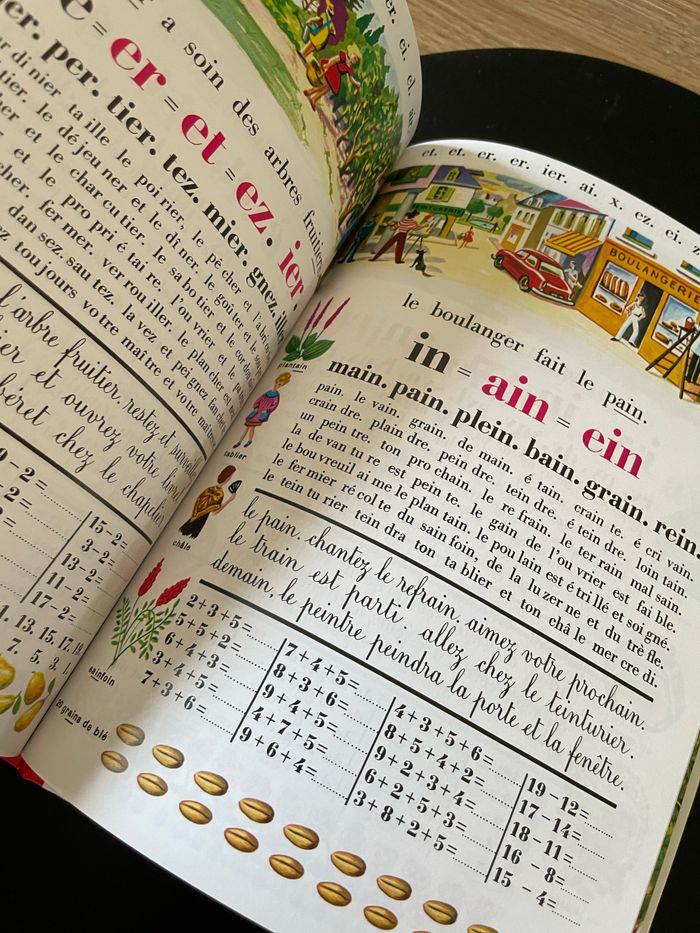 er. ei. el.
a soin des arbres fruitiers
e = er = et = ez. ier
per. tier. tez. mier. gnez.
dinier taille le poirier. le pêcher et l'a
le déjeuner et le dîner. le goûter et
et le charcutier. le sabotier et le cor
le propriétaire. l'ouvrier et le
cher. fermer. verrouiller. le plancher est
dansez. sautez. lavez et peignez
toujours votre maître et votre
l'arbre fruitier. restez et
et ouvrez votre
béret chez le chapelier
9-2=
15-2=
3-2=
13-2=
11-2=
17-2=
1. 13. 15. 17. 19
7. 5. 3. 1
et. et. er. er. ier. ai. x. ez. ei.
TEINTURERIE
BOULANGERIE
le boulanger fait le pain.
in = ain = ein
main. pain. plein. bain. grain. rein.
plantain
tablier
châle
sainfoin
20 grains de blé
pain. le vain. grain. de main. é tain. crain te. é cri vain.
crain dre. plain dre. pein dre. tein dre. é tein dre. loin tain.
un pein tre. ton pro chain. le re frain. le ter rain mal sain.
la de van tu re est pein te. le gain de l'ou vrier est fai ble.
le bou vreuil ai me le plan tain. le pou lain est é tri llé et soi gné.
le fer mier ré col te du sain foin, de la lu zer ne et du trè fle.
le tein tu rier tein dra ton ta blier et ton châ le mer cre di.
le pain. chantez le refrain. aimez votre prochain.
le train est parti. allez chez le teinturier.
demain, le peintre peindra la porte et la fenêtre.
2+3+5=
5+5+2=
6+4+3=
3+4+5=
7+3+6=
7+4+5=
8+3+6=
9+4+5=
4+7+5=
9+6+4=
4+3+5+6=
8+5+4+2=
9+2+3+4=
6+2+5+3=
3+8+2+5=
19-12=
17-14=
18-11=
16 - 8=
15 - 4=